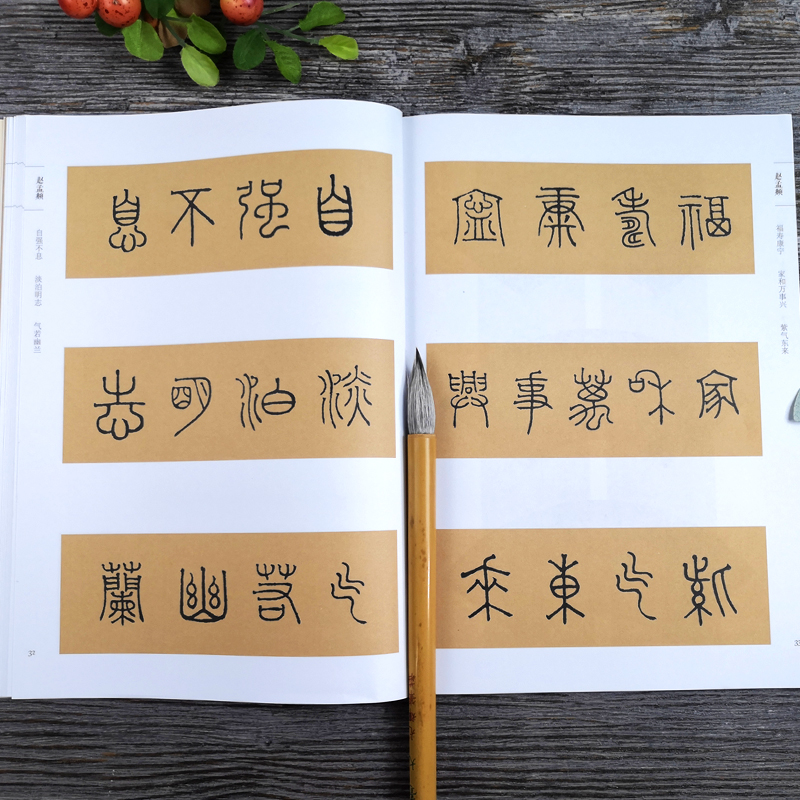 赵孟頫
自强不息 淡泊明志 气若幽兰
自强不息
淡泊明志
气若幽蘭
32
福壽康寧
家和萬事興
紫气東來
赵孟頫
福寿康宁 家和万事兴 紫气东来
33